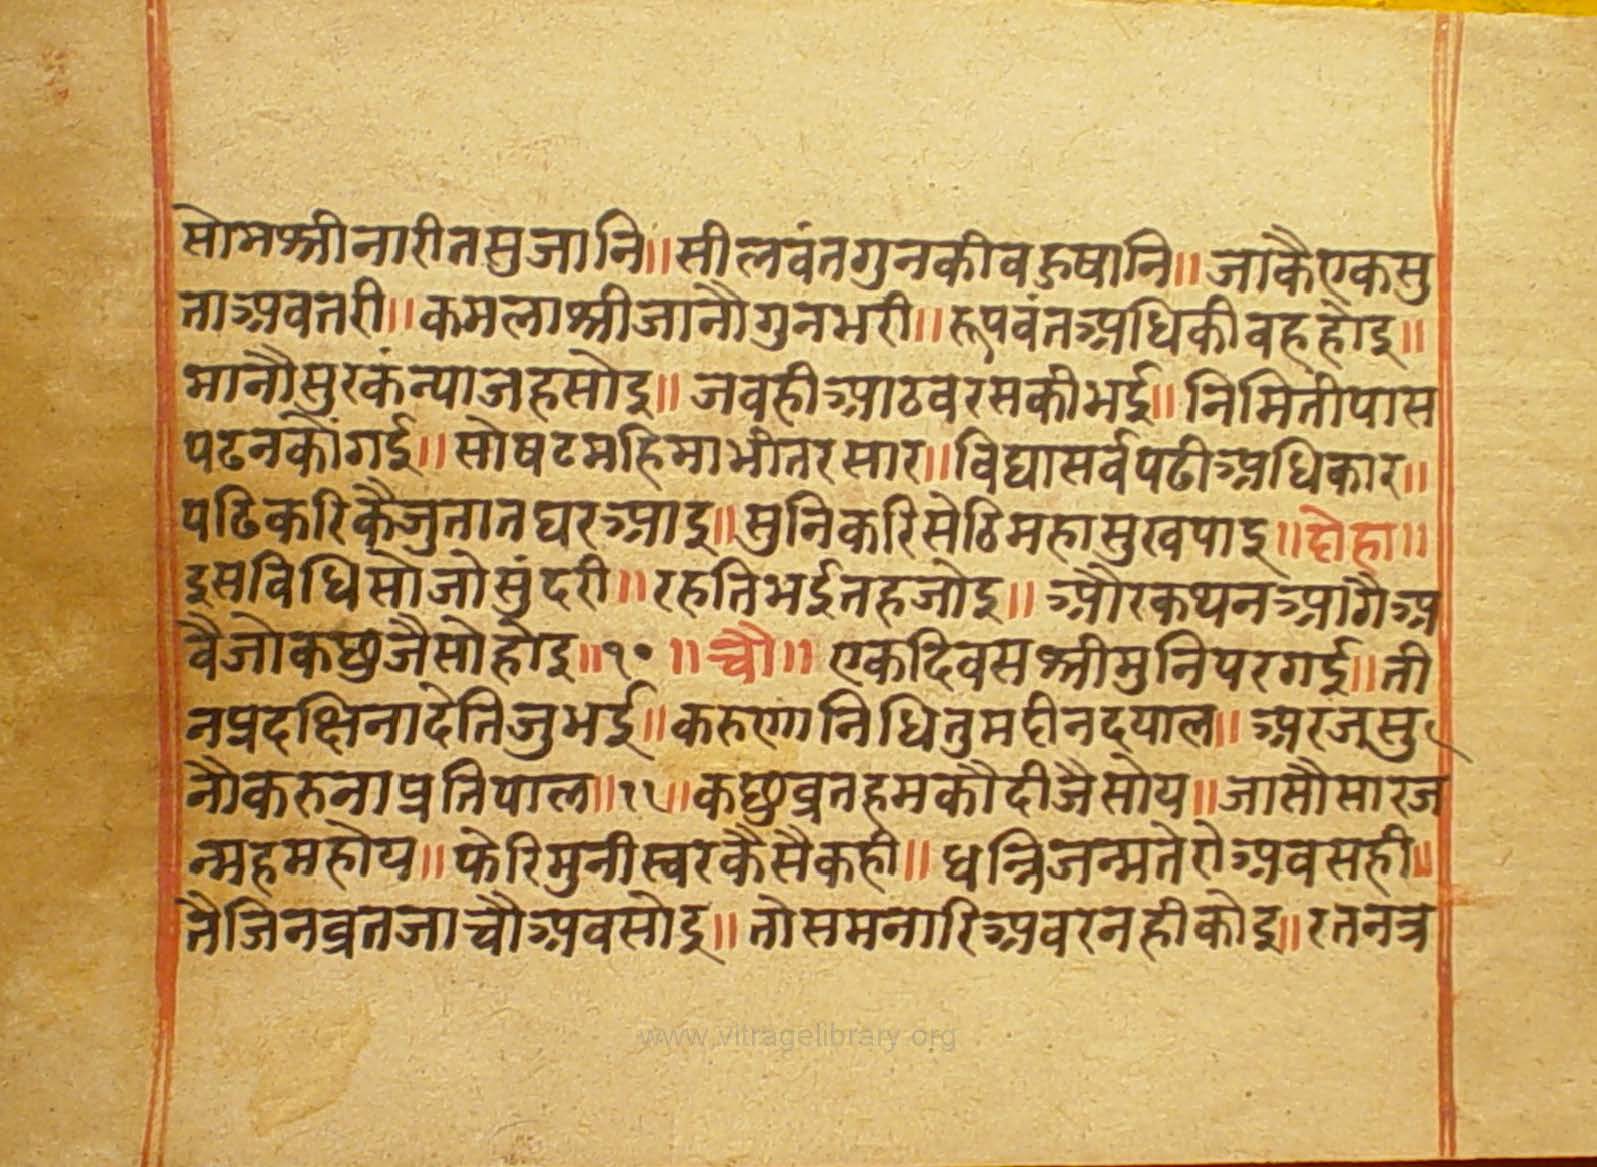 सोमश्रीनारीतसुजानि॥सीलवंतगुनकीवहुषानि॥जाकैएकसु
ताअवतरी॥कमलाश्रीजानौगुनभरी॥रूपवंतअधिकीवहहोइ॥
मानौसुरकंन्याजहसोइ॥जवहीआठवरसकीभई॥निमितीपास
पढनकौंगई॥सोषटमहिमाभीतरसार॥विद्यासर्वपढीअधिकार॥
पढिकरिकैजुतातघरआइ॥सुनिकरिसेठिमहासुखपाइ॥दोहा॥
इसविधिसोजोसुंदरी॥रहतिभईतहजोइ॥औरकथनआगैअ
वैजोकछुजैसोहोइ॥१०॥चौ॥एकदिवसश्रीमुनिपरगई॥ती
नप्रदक्षिनादेतिजुभई॥करुणानिधितुमदीनदयाल॥अरजसु
नौकरुनाप्रतिपाल॥११॥कछुव्रतहमकौदीजैसोय॥जासौसारज
न्महमहोय॥फेरिमुनीस्वरकैसैकही॥धन्निजन्मतेरोअवसही॥
तैजिनव्रतजाचौअवसोइ॥तोसमनारिअवरनहीकोइ॥रतनत्र
www.vitragelibrary.org